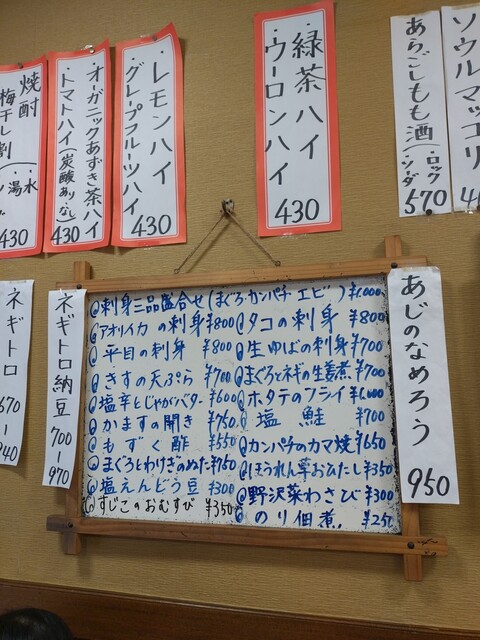 焼酎
梅干し割
湯水
430
・オーガニックあずき茶ハイ
・トマトハイ(炭酸あり・なし)
430
・レモンハイ
・グレープフルーツハイ
430
・緑茶ハイ
・ウーロンハイ
430
あらごしもも酒(・ロック・ソーダ
570
ソウルマッコリ
ネギトロ
670
940
ネギトロ納豆
700~970
刺身三品盛合せ(まぐろ・カンパチ・エビ)¥1,000
アオリイカの刺身¥800
平目の刺身 ¥800
きすの天ぷら ¥700
塩辛とじゃがバター¥600
かますの開き ¥750
もずく酢 ¥550
まぐろとわけぎのぬた¥750
塩えんどう豆 ¥300
すじこのおむすび ¥350
タコの刺身 ¥800
生ゆばの刺身¥700
まぐろとネギの生姜煮¥700
ホタテのフライ¥1,000
塩鮭 ¥700
カンパチのカマ焼¥650
ほうれん草おひたし¥350
野沢菜わさび¥300
のり佃煮 ¥250
あじのなめろう
950